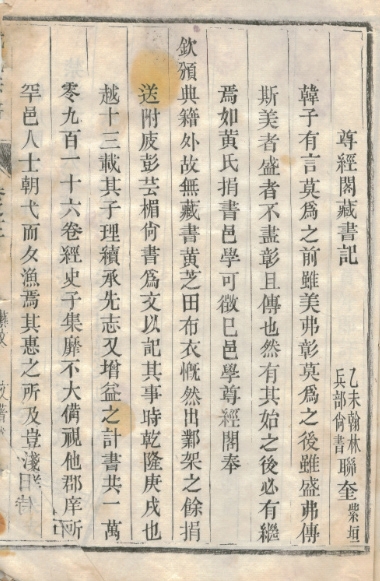 尊經閣藏書記
乙未翰林
兵部尙書
聯奎
紫垣
韓子有言莫爲之前雖美弗彰莫爲之後雖盛弗傳
斯美者盛者不盡彰且傳也然有其始之後必有繼
焉如黃氏捐書邑學可徵已邑學尊經閣奉
欽頒典籍外故無藏書黃芝田布衣慨然出鄴架之餘捐
送附庋彭芸楣尙書爲文以記其事時乾隆庚戌也
越十三載其子理續承先志又增益之計書共一萬
零九百一十六卷經史子集靡不大備視他郡庠所
罕邑人士朝弋而夕漁焉其惠之所及豈淺